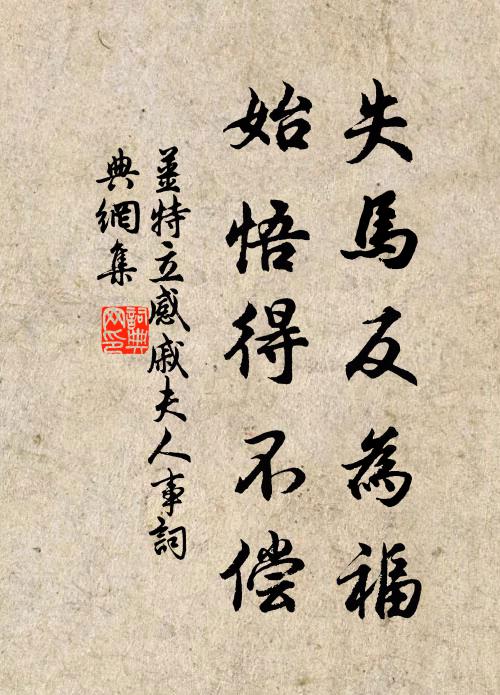 失馬反為福
始悟得不偿
姜特立感戚夫人事詞
典網集
詞典网印